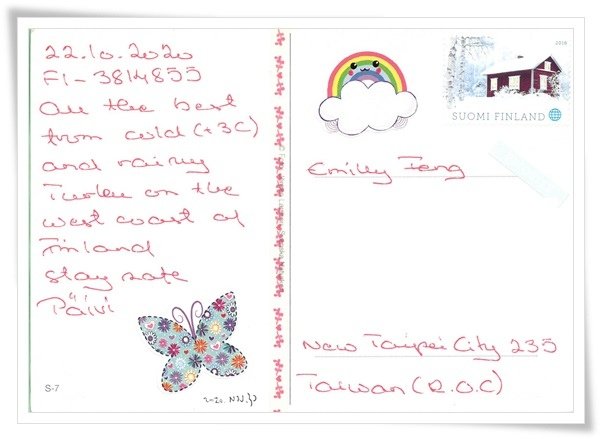 22.10.2020
FI-3814855
All the best
from cold (+3C)
and rainy
Turku on the
west coast of
Finland
stay safe
Päivi
S-7
2018
SUOMI FINLAND
Emilly Feng
New Taipei City 235
Taiwan (R.O.C)